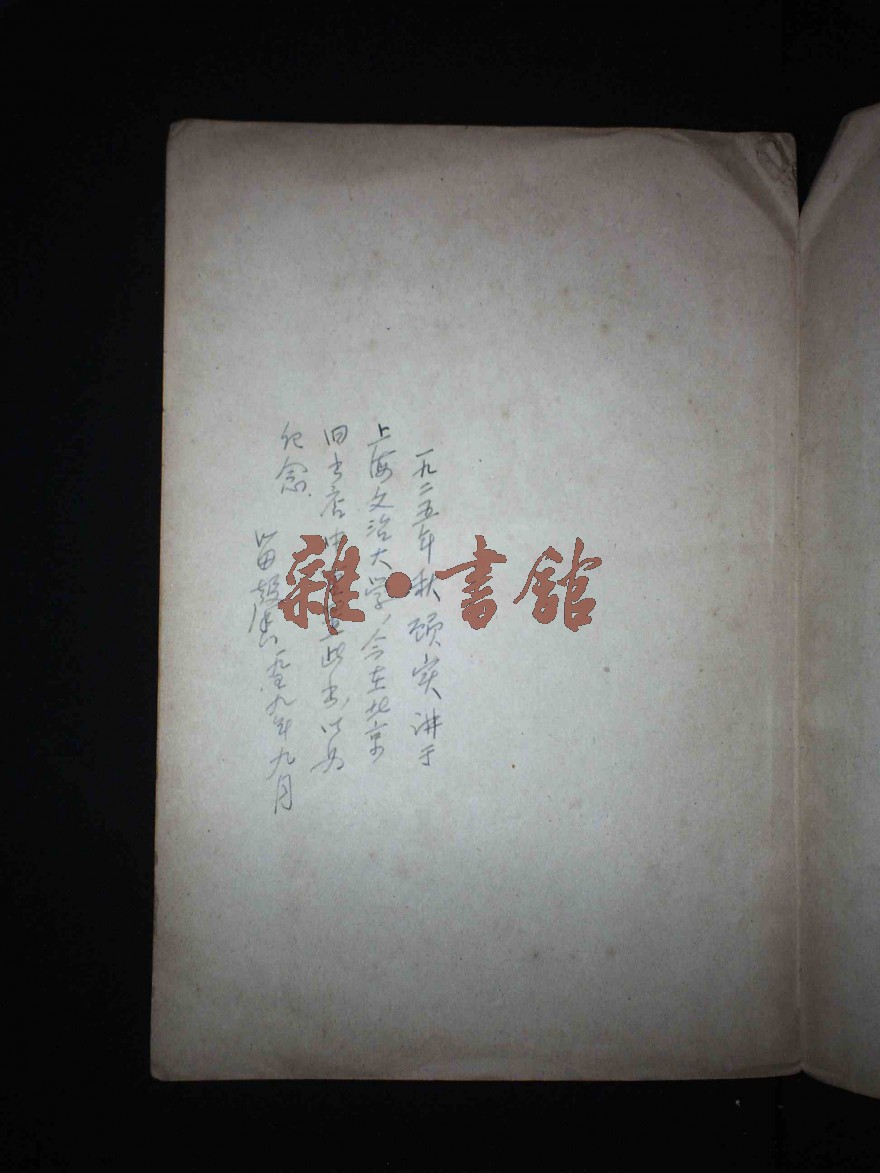 一九二五年秋顾实讲于
上海文治大学,今在北京
旧书店中此书,以为
纪念
一九五九年九月
雜·書館